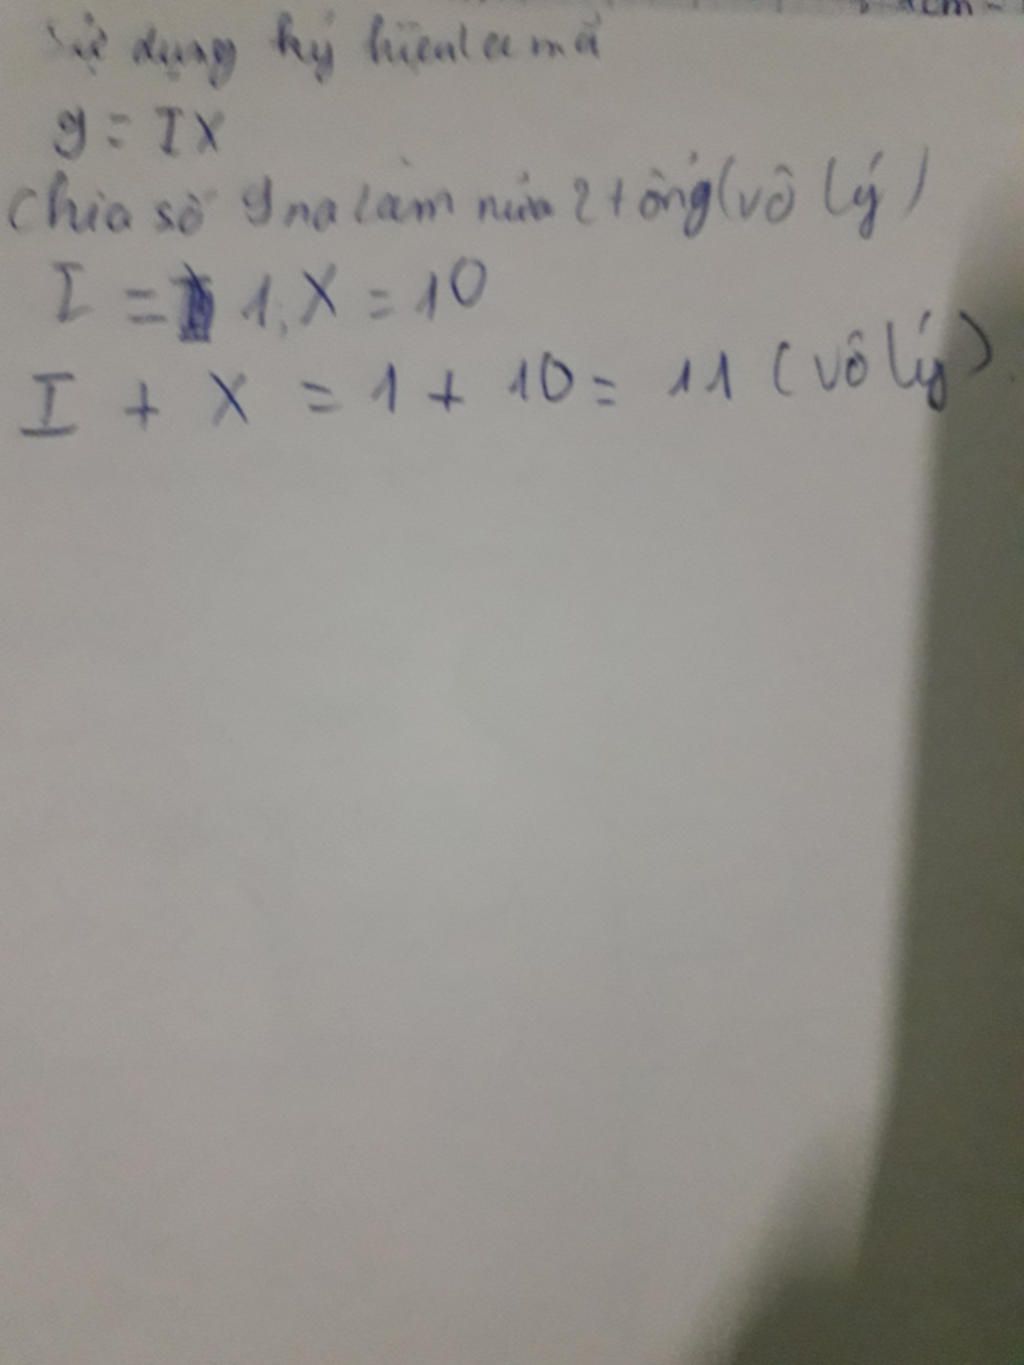 Sử dụng ký hiệu la mã
9 = IX
Chia số 9 na làm nửa 2 tổng (vô lý)
I = 1, X = 10
I + X = 1 + 10 = 11 (vô lý)